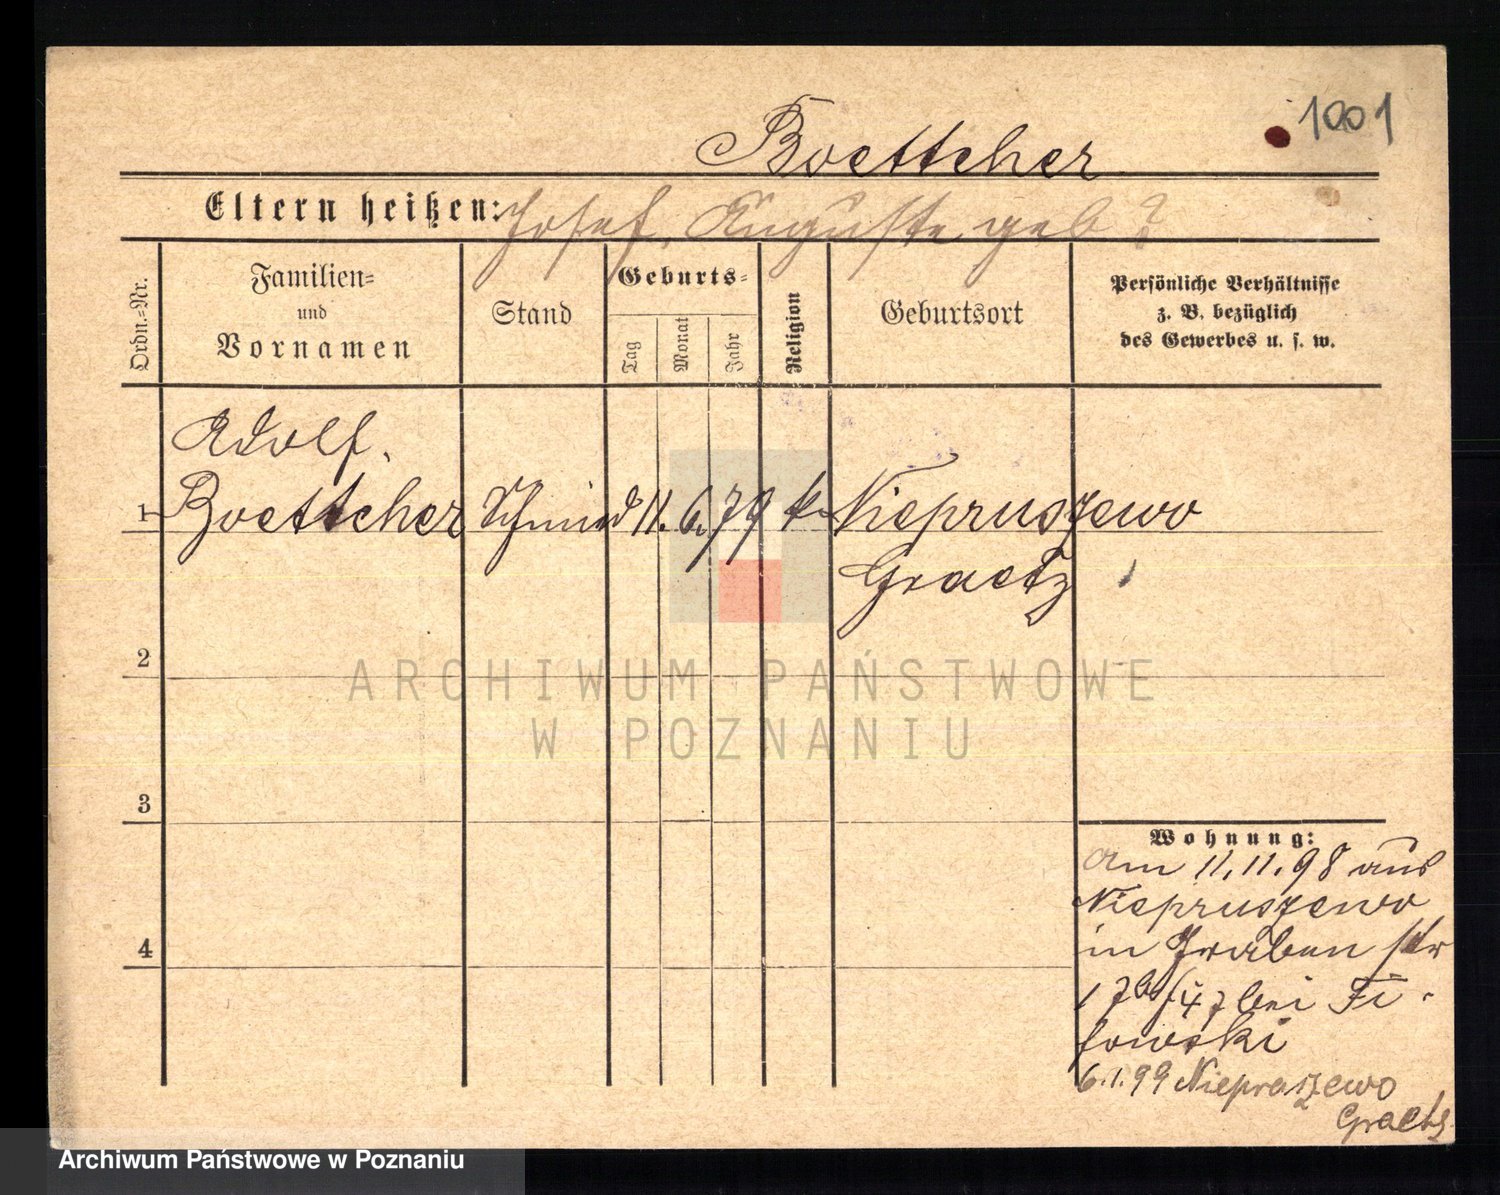 1001
Boettcher
Eltern heißen: Josef, Auguste geb ?
Ordn.-Nr.
Familien-
und
Vornamen
Stand
Geburts-
Tag
Monat
Jahr
Religion
Geburtsort
Persönliche Verhältnisse
z. B. bezüglich
des Gewerbes u. s. w.
Adolf.
1 Boettcher Schmied 11. 6. 79 k. Niepruszewo
Graetz
2
3
4
Wohnung:
Am 11.11.98 aus
Niepruszewo
in Graben str
bei Fi-
lowski
6.1.99 Niepruszewo
Graetz
ARCHIWUM PAŃSTWOWE
W POZNANIU
Archiwum Państwowe w Poznaniu